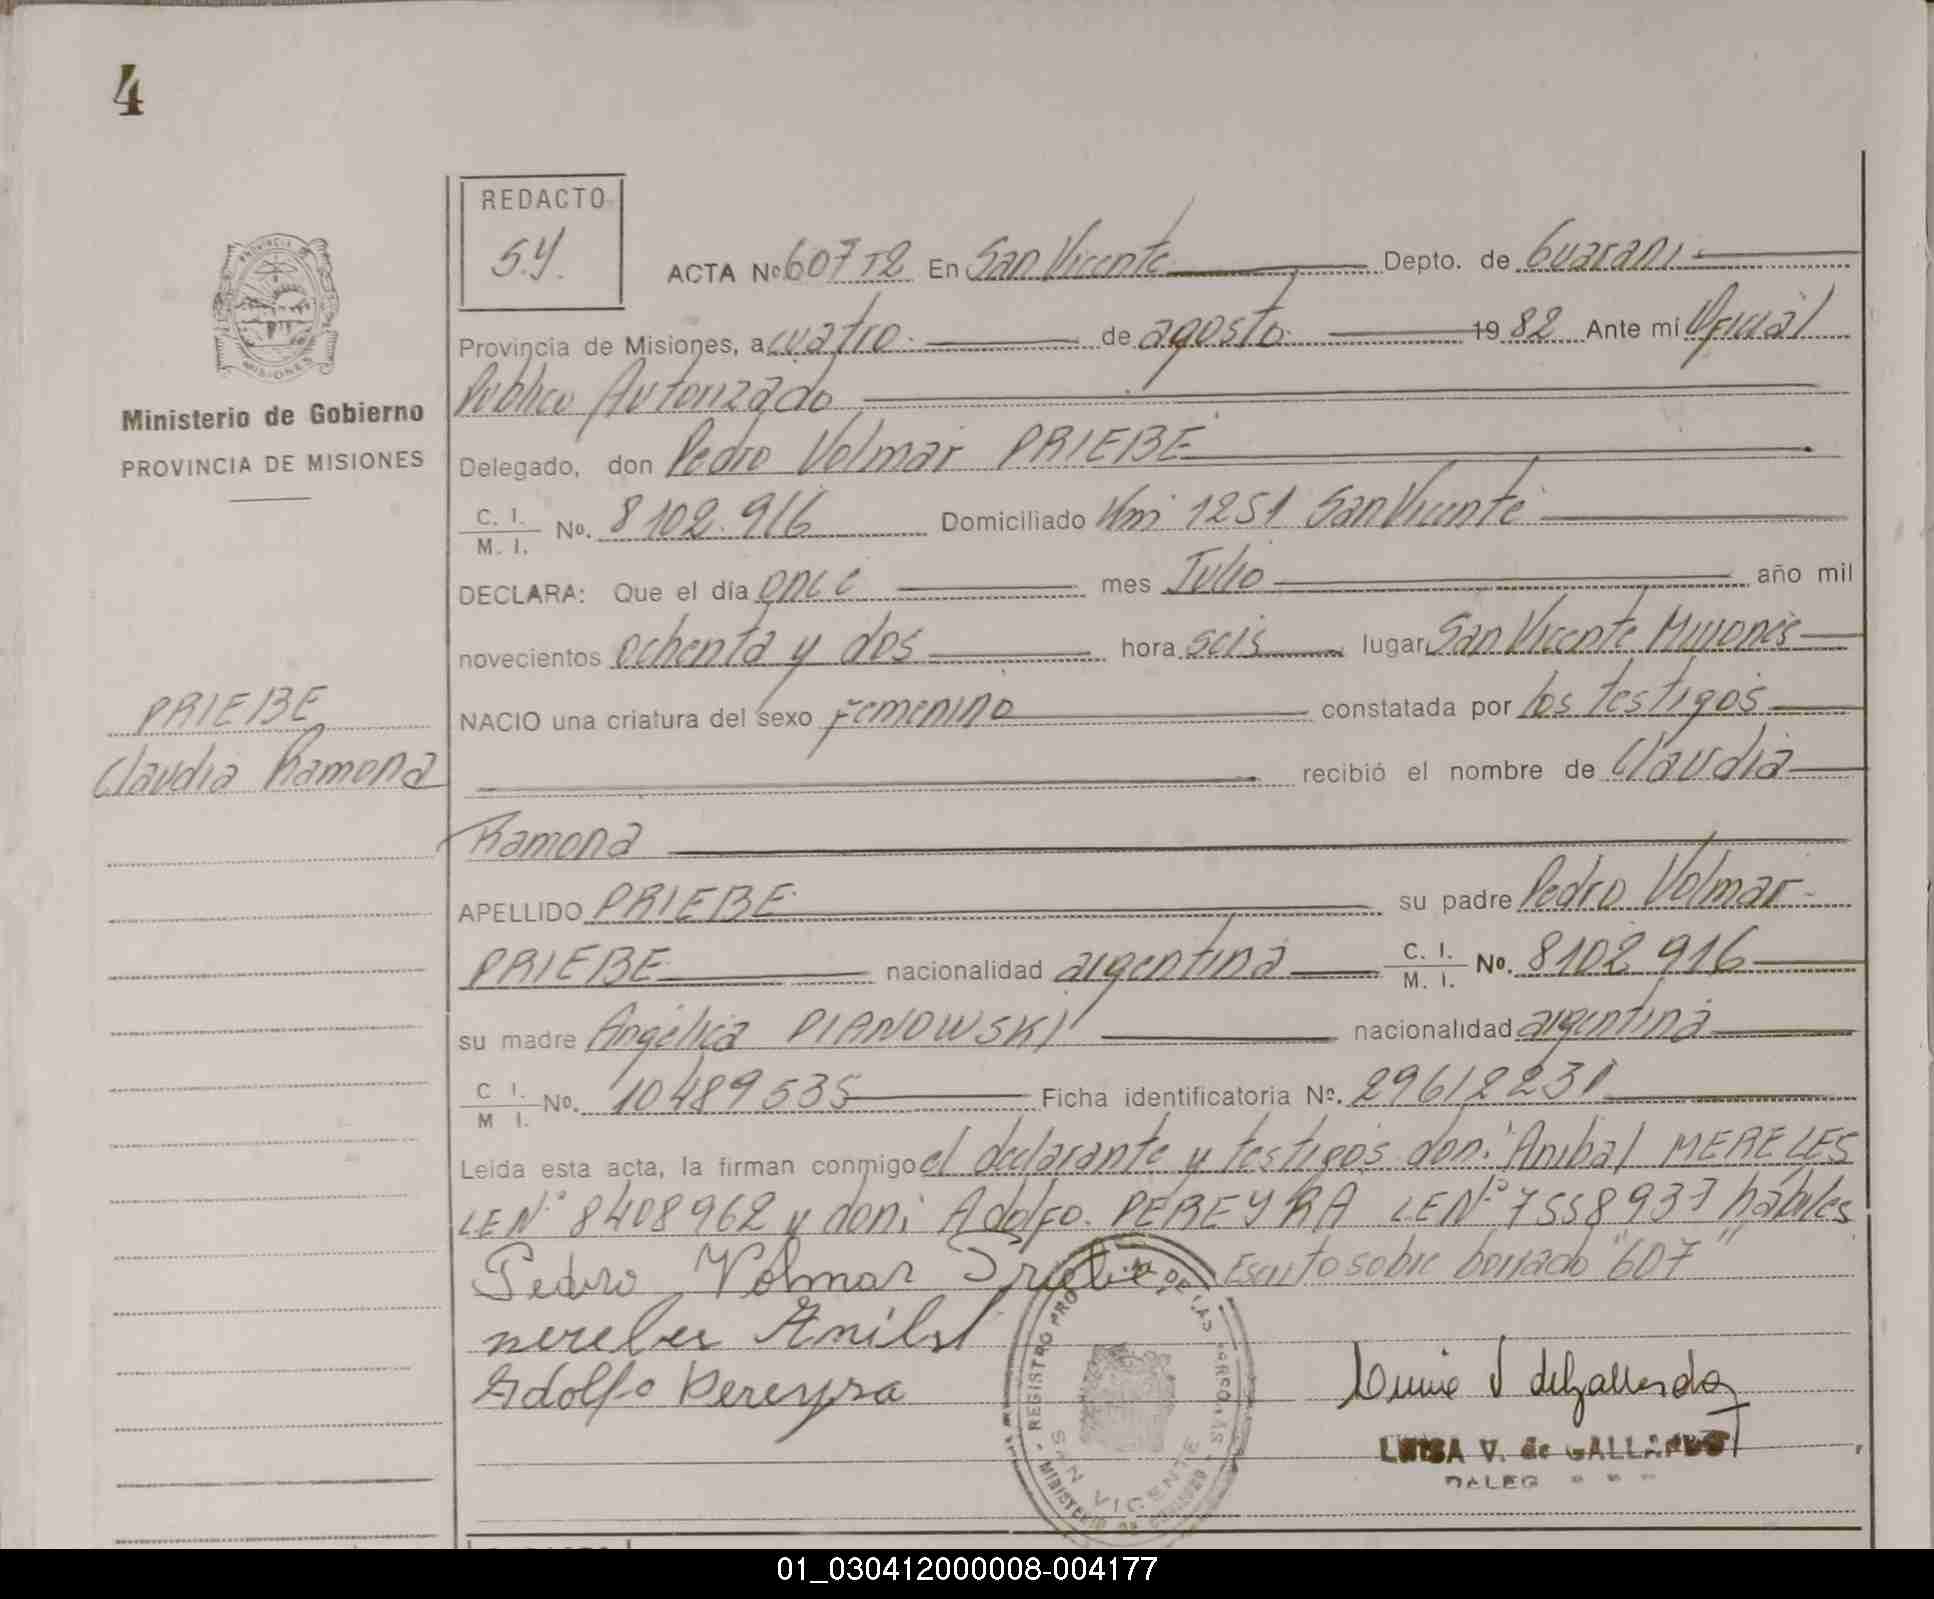 4
REDACTO
S.Y.
ACTA Nº 607 T2 En San Vicente Depto. de Guarani
Provincia de Misiones, a cuatro de agosto 1982 Ante mi Oficial
Publico Autorizado
Ministerio de Gobierno
PROVINCIA DE MISIONES
Delegado, don Pedro Volmar PRIEBE
C. I. M. I. Nº. 8102.916 Domiciliado Km 1251 San Vicente
DECLARA: Que el día once mes Julio año mil
novecientos ochenta y dos hora seis lugar San Vicente Misiones
PRIEBE
NACIO una criatura del sexo Femenino constatada por los testigos
Claudia Ramona
recibió el nombre de Claudia
Ramona
APELLIDO PRIEBE su padre Pedro Volmar
PRIEBE nacionalidad argentina C. I. M. I. Nº. 8102916
su madre Angélica PIANOWSKI nacionalidad argentina
C I. M I. Nº. 10489535 Ficha identificatoria Nº. 29612231
Leida esta acta, la firman conmigo el declarante y testigos don: Anibal MERELES
LE Nº 8408962 y don: Adolfo PEREYRA LE Nº 7558937 hábiles
Pedro Volmar Priebe Escrito sobre borrado "607"
Mereles Anibal
Adolfo Pereyra
REGISTRO PRO DE LAS PERSONAS
SAN VICENTE
MINISTERIO DE GOBIERNO
LUISA V. de GALLARDO
01_030412000008-004177